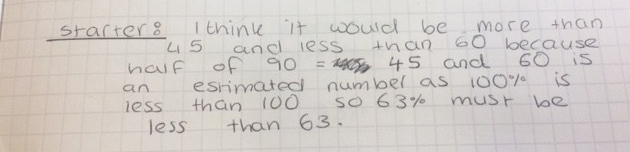 starter: I think it would be more than
45 and less than 60 because
half of 90 = 45 and 60 is
an esrimated number as 100% is
less than 100 so 63% must be
less than 63.